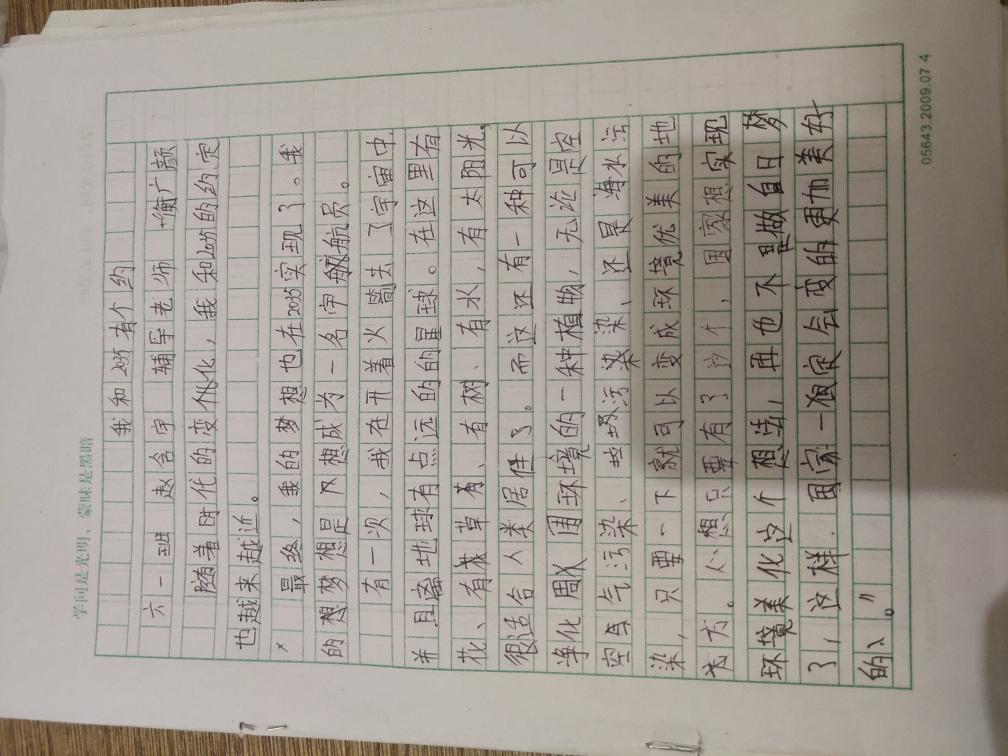 学问是光明，蒙昧是黑暗
我和2035有个约
六一班 赵含宇 辅导老师 衡广颜
随着时代的变化，我和2035的约定
也越来越近。
最终，我的梦想也在2035实现了。我
的想梦想是风想成为一名宇航员。
有一次，我在开着火箭去了宇宙中
并且离地球有点远的的星球。在这里有
花、有草有、有树、有水，有太阳光。
很适合人类居住了。而这还有一种可以
净化周围环境的一种植物，无论是空
空气污染、垃圾污染、还是海水污
染，只要一下就可以变成环境优美的地
方。心想只要有了这个，国家想实现
环境美化这个想法，再也不是做白日梦
了，这样.国家一定会变的更加美好
的》。”
05643.2009.07 4